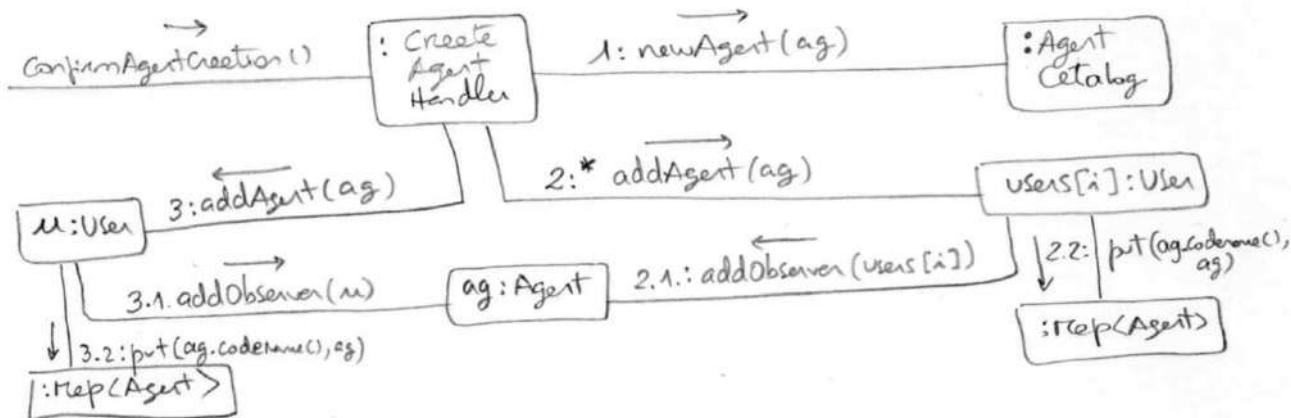 confirmAgentCreation()
: Create
Agent
Handler
1: newAgent(ag)
:Agent
Catalog
3: addAgent(ag)
2:* addAgent(ag)
users[i]: User
u: User
3.1. addObserver(u)
ag: Agent
2.1.: addObserver(users[i])
2.2: put(ag.codename(),
ag)
3.2: put(ag.codename(), ag)
:Map<Agent>
:Map<Agent>